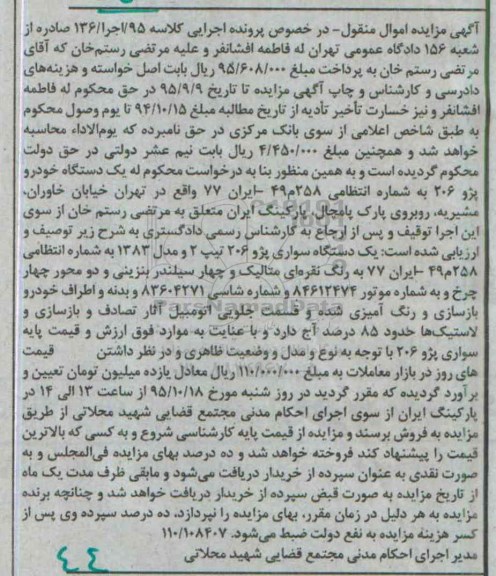 آگهی مزایده اموال منقول- در خصوص پرونده اجرایی کلاسه ۹۵/اجرا/۱۳۶ صادره از
شعبه ۱۵۶ دادگاه عمومی تهران له فاطمه افشانفر و علیه مرتضی رستم‌خان که آقای
مرتضی رستم خان به پرداخت مبلغ ۹۵/۶۰۸/۰۰۰ ریال بابت اصل خواسته و هزینه‌های
دادرسی و کارشناس و چاپ آگهی مزایده تا تاریخ ۹۵/۹/۹ در حق محکوم له فاطمه
افشانفر و نیز خسارت تأخیر تأدیه از تاریخ مطالبه مبلغ ۹۴/۱۰/۱۵ تا یوم وصول محکوم
به طبق شاخص اعلامی از سوی بانک مرکزی در حق نامبرده که یوم‌الاداء محاسبه
خواهد شد و همچنین مبلغ ۴/۴۵۰/۰۰۰ ریال بابت نیم عشر دولتی در حق دولت
محکوم گردیده است و به همین منظور بنا به درخواست محکوم له یک دستگاه خودرو
پژو ۲۰۶ به شماره انتظامی ۲۵۸م۴۹ -ایران ۷۷ واقع در تهران خیابان خاوران،
مشیریه، روبروی پارک پامچال، پارکینگ ایران متعلق به مرتضی رستم خان از سوی
این اجرا توقیف و پس از ارجاع به کارشناس رسمی دادگستری به شرح زیر توصیف و
ارزیابی شده است: یک دستگاه سواری پژو ۲۰۶ تیپ ۲ و مدل ۱۳۸۳ به شماره انتظامی
۲۵۸م۴۹ -ایران ۷۷ به رنگ نقره‌ای متالیک و چهار سیلندر بنزینی و دو محور چهار
چرخ و به شماره موتور ۸۴۶۱۲۴۷۴ و شماره شاسی ۸۳۶۰۴۲۷۱ و بدنه و اطراف خودرو
بازسازی و رنگ آمیزی شده و قسمت جلویی اتومبیل آثار تصادف و بازسازی و
لاستیک‌ها حدود ۸۵ درصد آج دارد و با عنایت به موارد فوق ارزش و قیمت پایه
سواری پژو ۲۰۶ با توجه به نوع و مدل و وضعیت ظاهری و در نظر داشتن قیمت
های روز در بازار معاملات به مبلغ ۱۱۰/۰۰۰/۰۰۰ ریال معادل یازده میلیون تومان تعیین و
برآورد گردیده که مقرر گردید در روز شنبه مورخ ۹۵/۱۰/۱۸ از ساعت ۱۳ الی ۱۴ در
پارکینگ ایران از سوی اجرای احکام مدنی مجتمع قضایی شهید محلاتی از طریق
مزایده به فروش برسند و مزایده از قیمت پایه کارشناسی شروع و به کسی که بالاترین
قیمت را پیشنهاد کند فروخته خواهد شد و ده درصد بهای مزایده فی‌المجلس و به
صورت نقدی به عنوان سپرده از خریدار دریافت می‌شود و مابقی ظرف مدت یک ماه
از تاریخ مزایده به صورت قبض سپرده از خریدار دریافت خواهد شد و چنانچه برنده
مزایده به هر دلیل در زمان مقرر، بهای مزایده را نپردازد، ده درصد سپرده وی پس از
کسر هزینه مزایده به نفع دولت ضبط می‌شود. ۱۱۰/۱۰۸۴۰۷
مدیر اجرای احکام مدنی مجتمع قضایی شهید محلاتی
۴۴